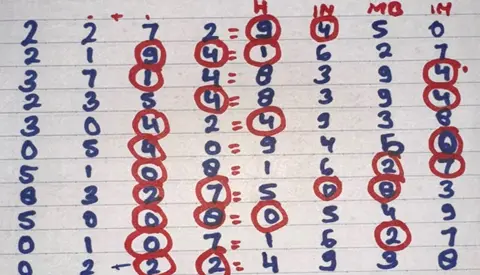 H IN MB IM
2 2 7 2 = 9 4 5 0
2 1 9 4 = 1 6 2 7
3 7 1 4 = 8 3 9 4
2 3 5 4 = 8 3 9 4
3 0 4 2 = 4 9 3 8
0 5 9 0 = 9 4 5 0
5 1 0 8 = 1 6 2 7
8 3 2 7 = 5 0 8 3
5 0 0 8 = 0 5 4 9
0 1 0 7 = 1 6 2 7
0 2 2 2 = 4 9 3 8